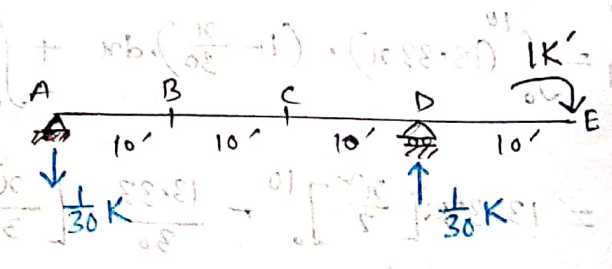 1K'
A B C D E
10' 10' 10' 10'
1/30 K 1/30 K